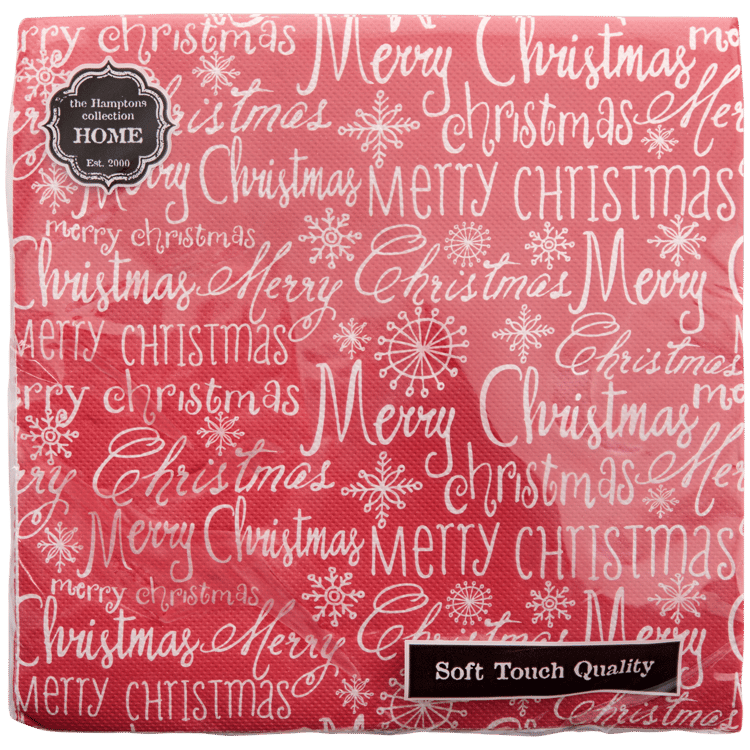 merry christmas Merry Christmas me
the Hamptons
collection
HOME
Est. 2000
Christmas christmas Me
Merry Christmas MERRY CHRISTMAS
merry christmas
Christmas Merry Christmas Merry
MERRY CHRISTMAS Christmas
rry christmas Merry Christmas me
ry Christmas christmas Me
Merry Christmas MERRY CHRISTMAS
merry christmas
Christmas Merry C Merry
Soft Touch Quality
MERRY CHRISTMAS